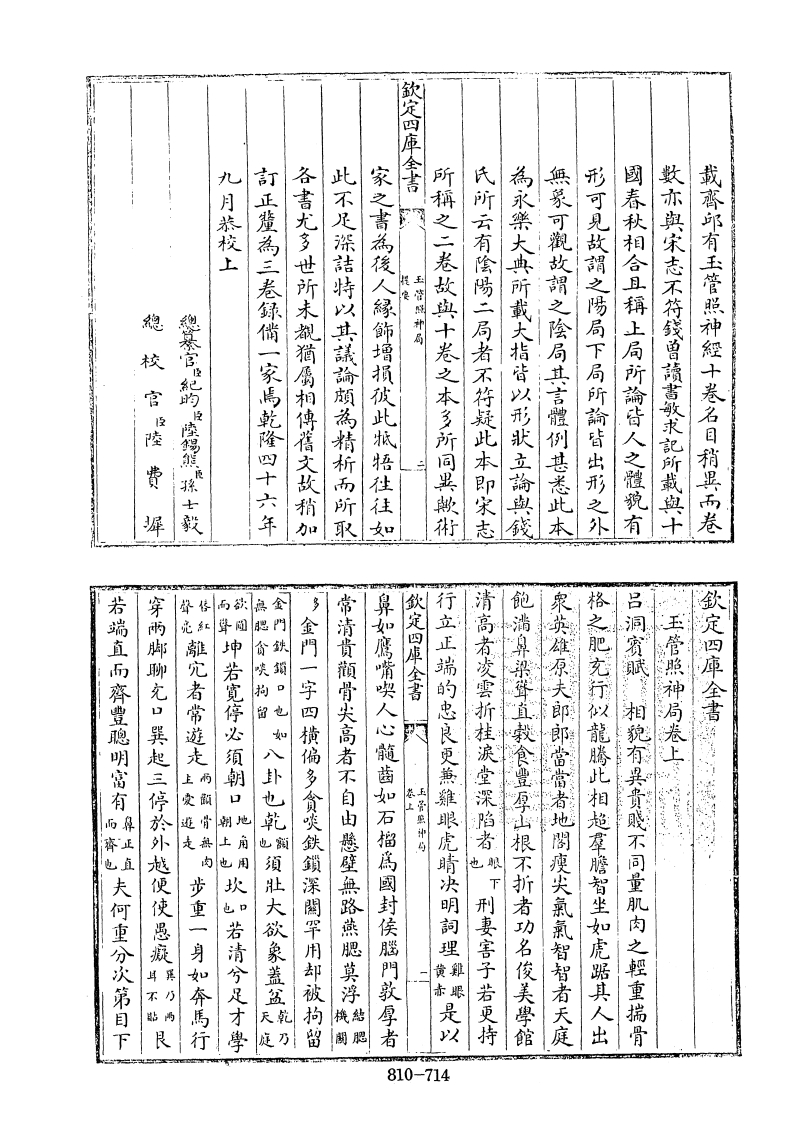 載齊邱有玉管照神經十卷名目稍異而卷
數亦與宋志不符錢曾讀書敏求記所載與十
國春秋相合且稱上局所論皆人之體貌有
形可見故謂之陽局下局所論皆出形之外
無象可觀故謂之陰局其言體例甚悉此本
為永樂大典所載大指皆以形狀立論與錢
氏所云有陰陽二局者不符疑此本即宋志
所稱之二卷故與十卷之本多所同異歟術
欽定四庫全書
玉管照神局
提要
二
家之書為後人縁飾增損彼此牴牾往往如
此不足深詰特以其議論頗為精析而所取
各書尤多世所未覩猶屬相傳舊文故稍加
訂正釐為三卷録備一家焉乾隆四十六年
九月恭校上
總纂官臣紀昀臣陸錫熊臣孫士毅
總校官臣陸費墀
欽定四庫全書
玉管照神局卷上
呂洞賓賦 相貌有異貴賤不同量肌肉之輕重揣骨
格之肥充行似龍騰此相超羣膽智坐如虎踞其人出
衆英雄原夫郎郎當當者地閣瘦尖氣氣智智者天庭
飽滿鼻梁聳直穀食豐厚山根不折者功名俊美學館
清高者凌雲折桂淚堂深陷者眼下也刑妻害子若更持
行立正端的忠良更兼雞眼虎睛决明詞理雞眼黄赤是以
欽定四庫全書
玉管照神局
卷上
一
鼻如鷹嘴喫人心髓齒如石榴爲國封侯腦門敦厚者
常清貴顴骨尖高者不自由懸壁無路燕腮莫浮結腮機關
多金門一字四橫偏多貪啖鉄鎖深關罕用却被拘留
金門鉄鎖口也如無腮貪啖拘留八卦也乾顴也須壯大欲象蓋盆乾乃天庭
欲圓而聳坤若寛停必須朝口地角用朝上也坎口也若清兮足才學
脣紅聲亮離宂者常遊走兩顴骨無肉上愛遊走步重一身如奔馬行
穿兩脚聊允口巽起三停於外越便使愚癡巽乃兩耳不貼艮
若端直而齊豐聰明富有鼻正直而齊也夫何重分次第目下
810-714